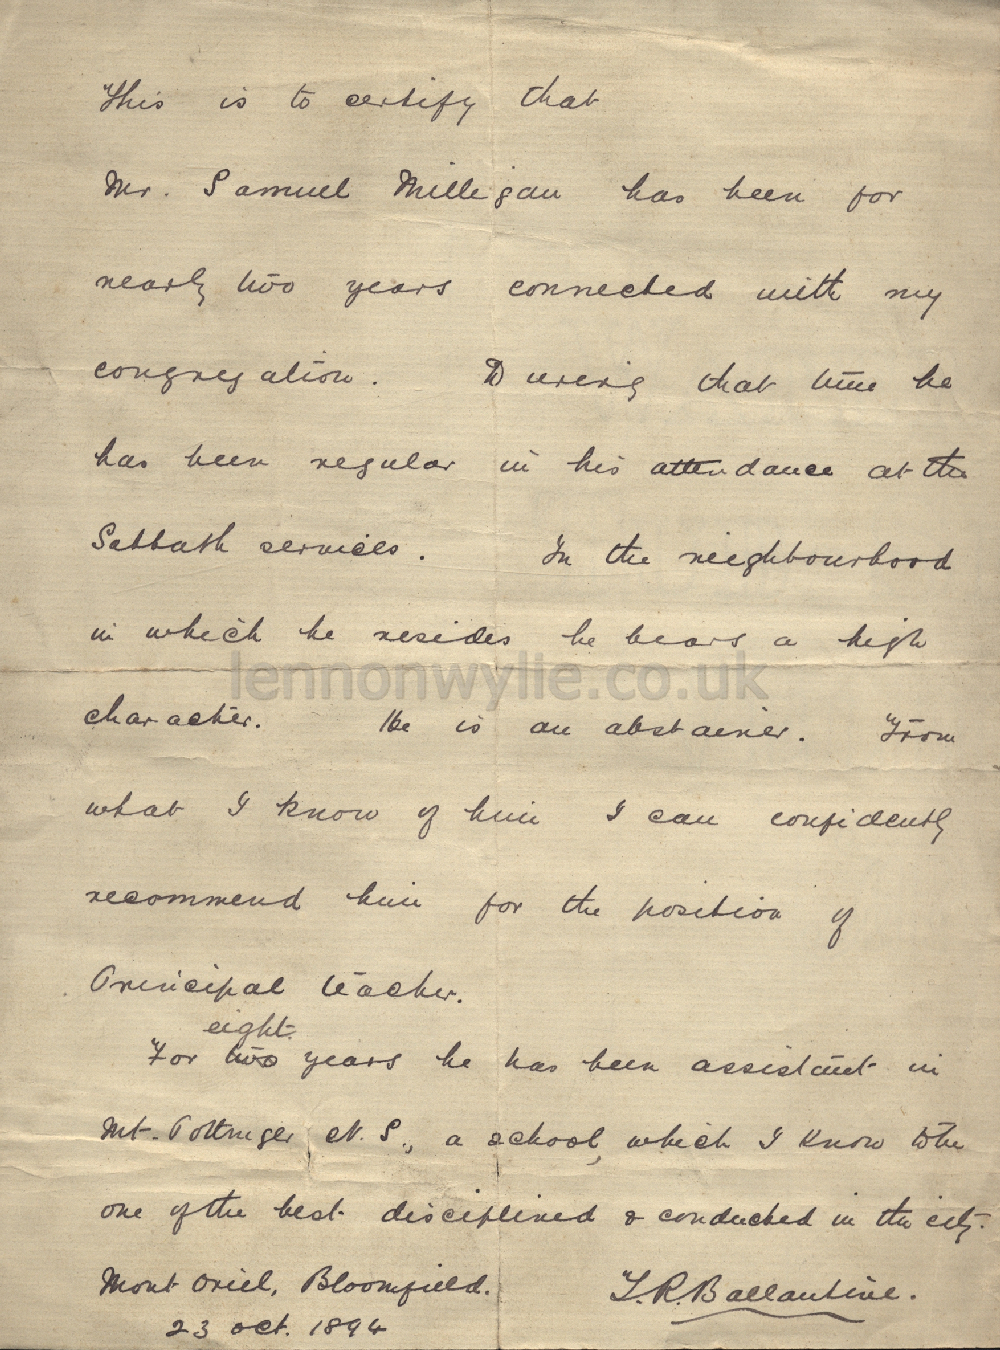 This is to certify that
Mr. Samuel Milligan has been for
nearly two years connected with my
congregation. During that time he
has been regular in his attendance at the
Sabbath services. In the neighbourhood
in which he resides he bears a high
lennonwylie.co.uk
character. He is an abstainer. From
what I know of him I can confidently
recommend him for the position of
Principal teacher.
eight
For two years he has been assistant in
Mt. Pottinger N. S., a school, which I know to be
one of the best disciplined & conducted in the city.
Mont Oriel, Bloomfield. T. R. Ballantine.
23 Oct. 1894